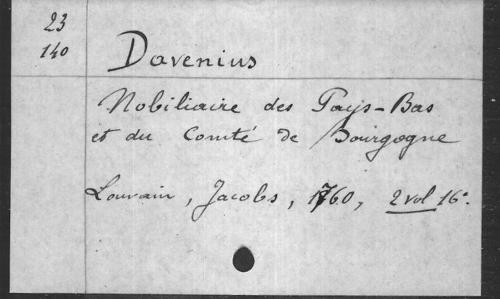 23
140
Davenius
Nobiliaire des Pays-Bas
et du Comté de Bourgogne
Louvain, Jacobs, 1760, 2 vol 16°.